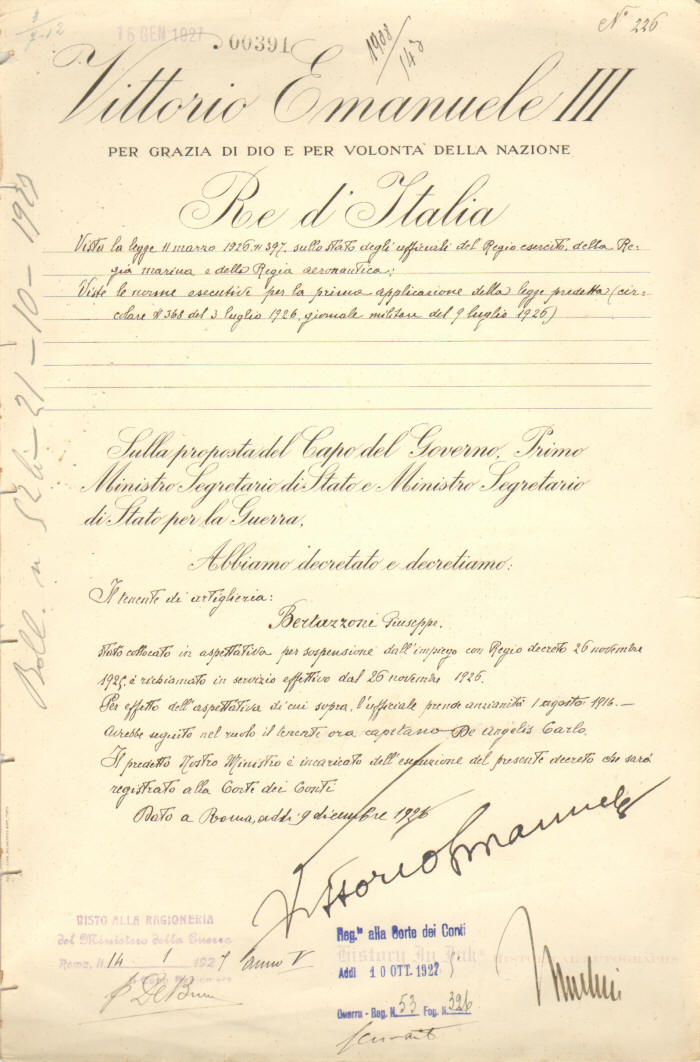 16 GEN 1927
00391
1908
143
N° 226
Vittorio Emanuele III
PER GRAZIA DI DIO E PER VOLONTÀ DELLA NAZIONE
Re d'Italia
Vista la legge 11 marzo 1926, n 397, sullo stato degli ufficiali del Regio esercito, della Re-
gia marina e della Regia aeronautica;
Viste le norme esecutive per la prima applicazione della legge predetta (cir-
colare n 368 del 3 luglio 1926, giornale militare del 9 luglio 1926)
Sulla proposta del Capo del Governo, Primo
Ministro Segretario di Stato e Ministro Segretario
di Stato per la Guerra,
Abbiamo decretato e decretiamo:
Il tenente di artiglieria:
Bertazzoni Giuseppe,
stato collocato in aspettativa per sospensione dall'impiego con Regio decreto 26 novembre
1925, è richiamato in servizio effettivo dal 26 novembre 1926.
Per effetto dell'aspettativa di cui sopra, l'ufficiale prende anzianità 1 agosto 1916.—
Avrebbe seguito nel ruolo il tenente ora capitano De Angelis Carlo.
Il predetto Nostro Ministro è incaricato dell'esecuzione del presente decreto che sarà
registrato alla Corte dei Conti
Dato a Roma, addì 9 dicembre 1926
Vittorio Emanuele
VISTO ALLA RAGIONERIA
del Ministero della Guerra
Roma, li 14 1 1927 Anno V
Reg.to alla Corte dei Conti
History In Ink
HISTORICAL AUTOGRAPHS
Addì 10 OTT. 1927
Guerra - Reg. N. 53 Fog. N. 326
Mussolini
Boll. n 52 li 21-10-1927